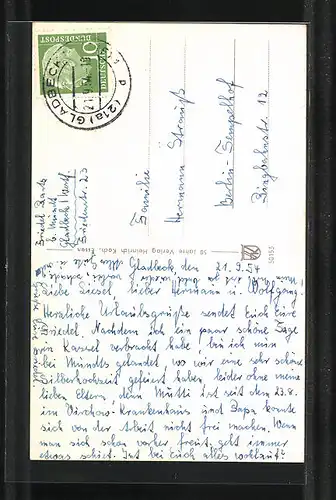 DEUTSCHE
BUNDESPOST
10
(21a) GLADBECK
21.9.54
Familie
Hermann Strauß
Berlin-Tempelhof
50 Jahre Verlag Heinrich Koch, Essen
Gladbeck, den 21.9.54
Liebe Liesel, lieber Hermann u. Wolfgang!
Herzliche Urlaubsgrüße sendet Euch Eure
Friedel. Nachdem ich ein paar schöne Tage
in Kassel verbracht habe, bin ich nun
bei Mündts gelandet, wo wir eine sehr schöne
Silberhochzeit gefeiert haben, leider ohne meine
lieben Eltern, denn Mutti ist seit dem 23.8.
im Virchow-Krankenhaus und Papa konnte
sich von der Arbeit nicht frei machen. Wenn
man sich schon vorher freut, geht immer
etwas schief. Ist bei Euch alles wohlauf?